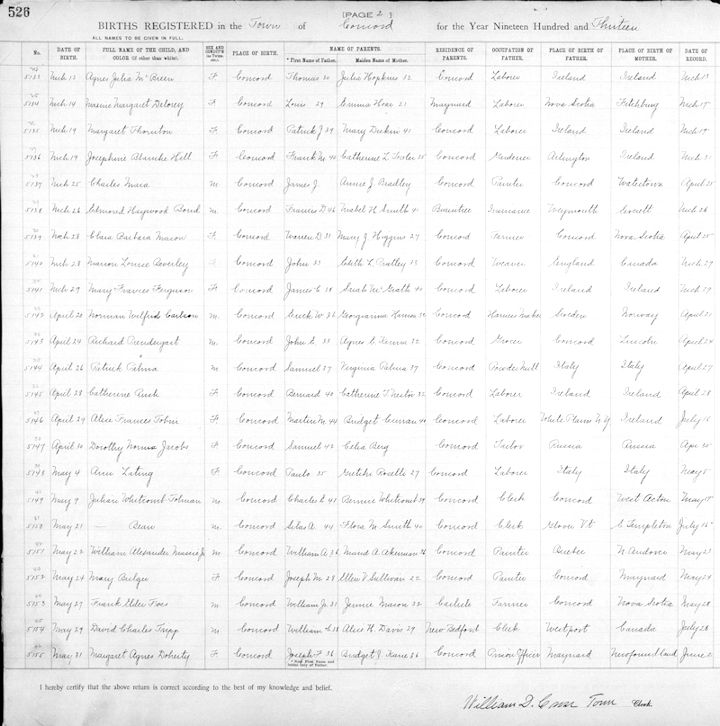 526
[PAGE 2]
BIRTHS REGISTERED in the Town of Concord for the Year Nineteen Hundred and Thirteen
ALL NAMES TO BE GIVEN IN FULL.
No. DATE OF BIRTH. FULL NAME OF THE CHILD, AND COLOR (if other than white). SEX AND PLACE OF BIRTH. NAME OF PARENTS. RESIDENCE OF PARENTS. OCCUPATION OF FATHER. PLACE OF BIRTH OF FATHER. PLACE OF BIRTH OF MOTHER. DATE OF RECORD.
* First Name of Father. Maiden Name of Mother.
5133 Mch 13 Agnes Julia McBreen F Concord Thomas 30 Julia Hopkins 32 Concord Laborer Ireland Ireland Mch 13
5134 Mch 14 Margaret Delorey F Concord Louis 29 Emma 21 Maynard Laborer Nova Scotia Fitchburg Mch 15
5135 Mch 19 Margaret Thornton F Concord Patrick J 39 Mary Durkin 41 Concord Laborer Ireland Ireland Mch 19
5136 Mch 19 Josephine Blanche Hill F Concord Frank M 40 Catherine L 35 Concord Gardener Arlington Ireland Mch 31
5137 Mch 25 Charles M Concord James J. Annie J Bradley Concord Painter Concord Watertown April 25
5138 Mch 26 Haywood Bond M Concord Francis D 46 Mabel H Smith 41 Braintree Insurance Weymouth Everett Mch 26
5139 Mch 28 Clara Barbara Mason F Concord Warren D 31 Mary J Higgins 27 Concord Farmer Concord Nova Scotia April 25
5140 Mch 28 Marion Louise Beverley Concord John 33 Edith L 23 Concord Weaver England Canada Mch 29
5141 Mch 29 Mary Frances Ferguson F Concord James C 38 Sarah McGrath 40 Concord Laborer Ireland Ireland Mch 29
5142 April 20 Norman Wilfred Carlson M Concord Georgianna Concord Harness Maker Sweden Norway April 21
5143 April 24 Richard Prendergast M. Concord John E 35 Agnes C 32 Concord Grocer Concord Lincoln April 24
5144 April 26 Patrick Palma M. Concord Samuel 37 Virginia Palma 37 Concord Powder Mill Italy Italy April 27
5145 April 28 Catherine Rush F Concord Bernard 40 Catherine T 32 Concord Laborer Ireland Ireland April 28
5146 April 29 Alice Frances Tobin F Concord Martin M 44 Bridget 40 Concord Laborer White Plains N Y Ireland July 15
5147 April 30 Dorothy Norma Jacobs F Concord Samuel 42 Celia Berg Concord Tailor Russia Russia Apr 30
5148 May 4 Ann F Concord Paulo 35 27 Concord Laborer Italy Italy May 5
5149 May 9 Julian Whitcomb Tolman M Concord Charles E 41 Bernice Whitcomb 39 Concord Clerk Concord West Acton May 15
5150 May 21 — Bean M. Concord Silas A 44 Flora M Smith 40 Concord Clerk Glover Vt Templeton July 15
5151 May 22 William Alexander Jr M Concord William A 26 Maud A Ackerman 26 Concord Painter Quebec N Andover May 23
5152 May 24 Mary Bulger F Concord Joseph M 28 Ellen V Sullivan 22 Concord Painter Concord Maynard May 24
5153 May 27 Frank Elder Foss M Concord William Jr 31 Jennie Mason 32 Carlisle Farmer Concord Nova Scotia May 28
5154 May 29 David Charles Tripp M Concord William S 38 Alice H Davis 29 New Bedford Clerk Westport Canada July 28
5155 May 31 Margaret Agnes Doherty F Concord Joseph F 36 Bridget J Kane 36 Concord Prison Officer Maynard Newfoundland June 2
I hereby certify that the above return is correct according to the best of my knowledge and belief.
William D. Town Clerk.